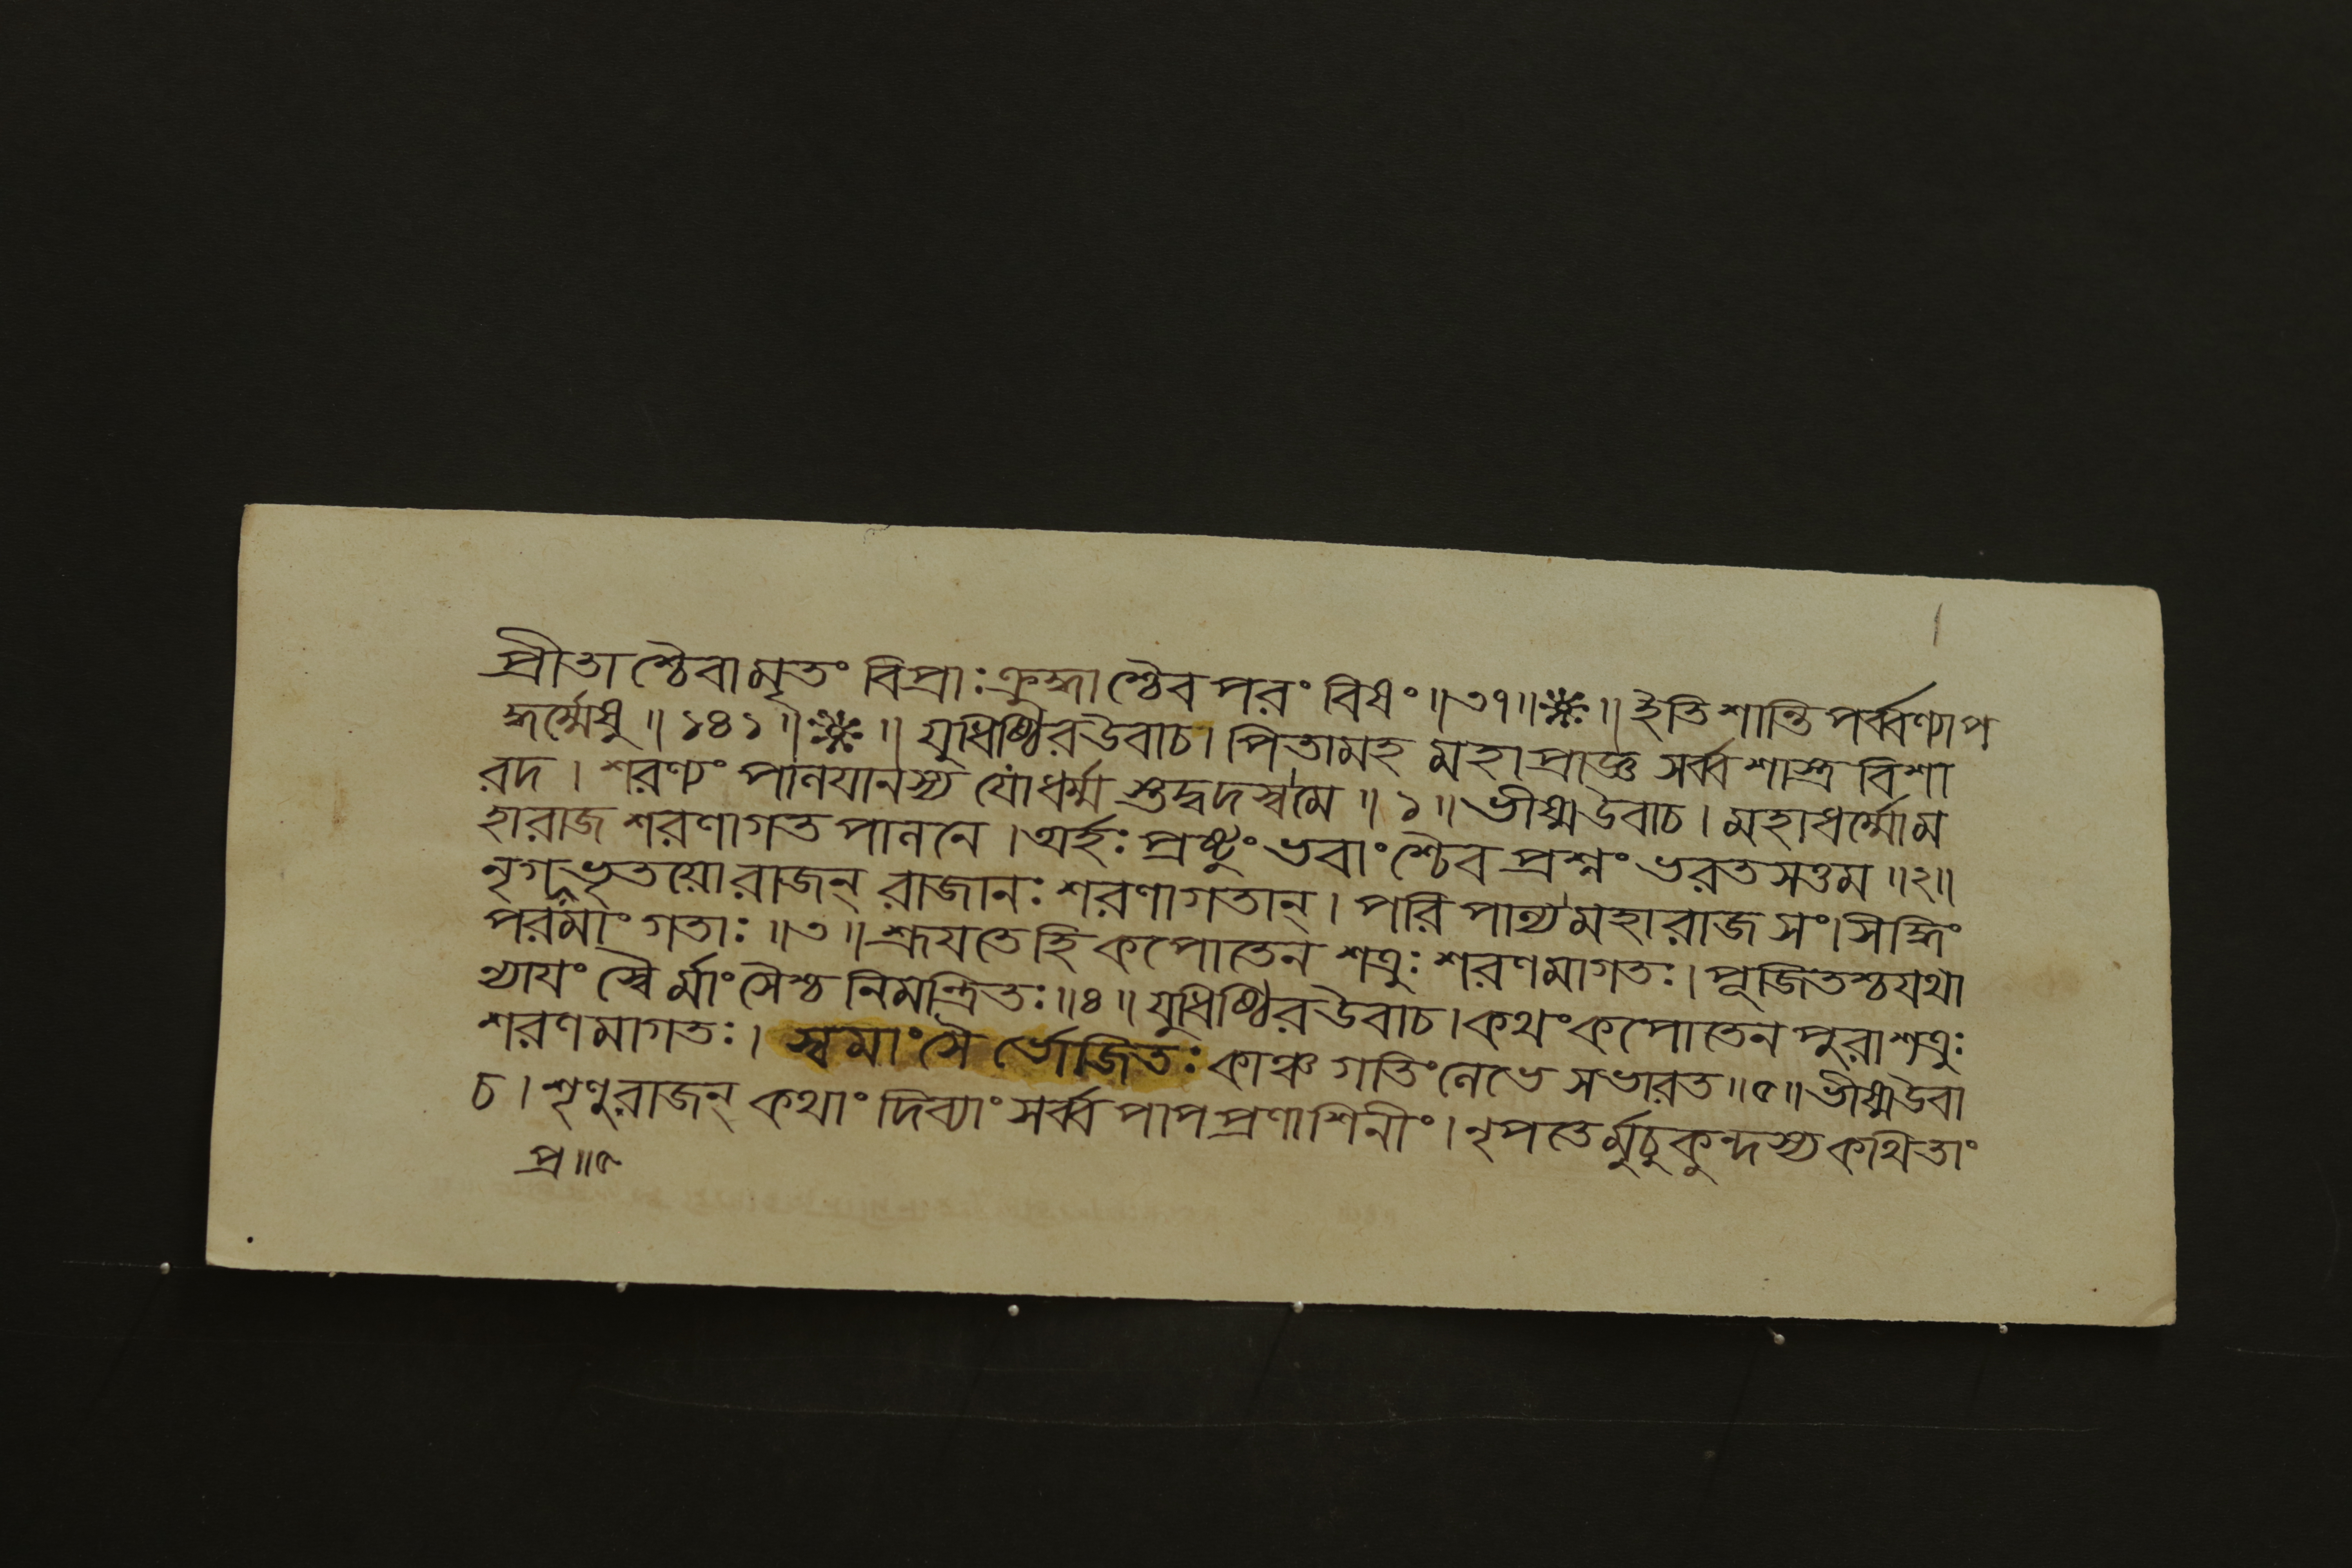 প্রীতাশ্চৈবামৃতং বিপ্রাঃ ক্রুদ্ধাশ্চৈব পরং বিষং ॥৩৭॥❈॥ ইতি শান্তিপর্ব্বণ্যাপ
দ্ধর্ম্মেষু ॥ ১৪১ ॥❈॥ যুধিষ্ঠির উবাচ। পিতামহ মহাপ্রাজ্ঞ সর্ব্বশাস্ত্র বিশা
রদ । শরণ্যং পালয়ানস্য যো ধর্ম্মস্তদ্বদস্ব মে ॥ ১ ॥ ভীষ্ম উবাচ । মহাধর্ম্মো ম
হারাজ শরণাগত পালনে । অর্হঃ প্রষ্টুং ভবাংশ্চৈব প্রশ্নং ভরতসত্তম ॥২॥
নৃগপ্রভৃতয়ো রাজন্ রাজানঃ শরণাগতান্ । পরিপাল্য মহারাজ সংসিদ্ধিং
পরমাং গতাঃ ॥৩॥ শ্রূয়তে হি কপোতেন শত্রুঃ শরণমাগতঃ। পূজিতশ্চ যথা
ন্যায়ং স্বৈর্মাংসৈশ্চ নিমন্ত্রিতঃ ॥৪॥ যুধিষ্ঠির উবাচ। কথং কপোতেন পুরা শত্রুঃ
শরণমাগতঃ। স্বমাংসৈর্ভোজিতঃ কাঞ্চ গতিং লেভে স ভারত ॥৫॥ ভীষ্ম উবা
চ । শৃণু রাজন্ কথাং দিব্যাং সর্ব্বপাপপ্রণাশিনীং । নৃপতের্মুচুকুন্দস্য কথিতাং
প্র ॥৫